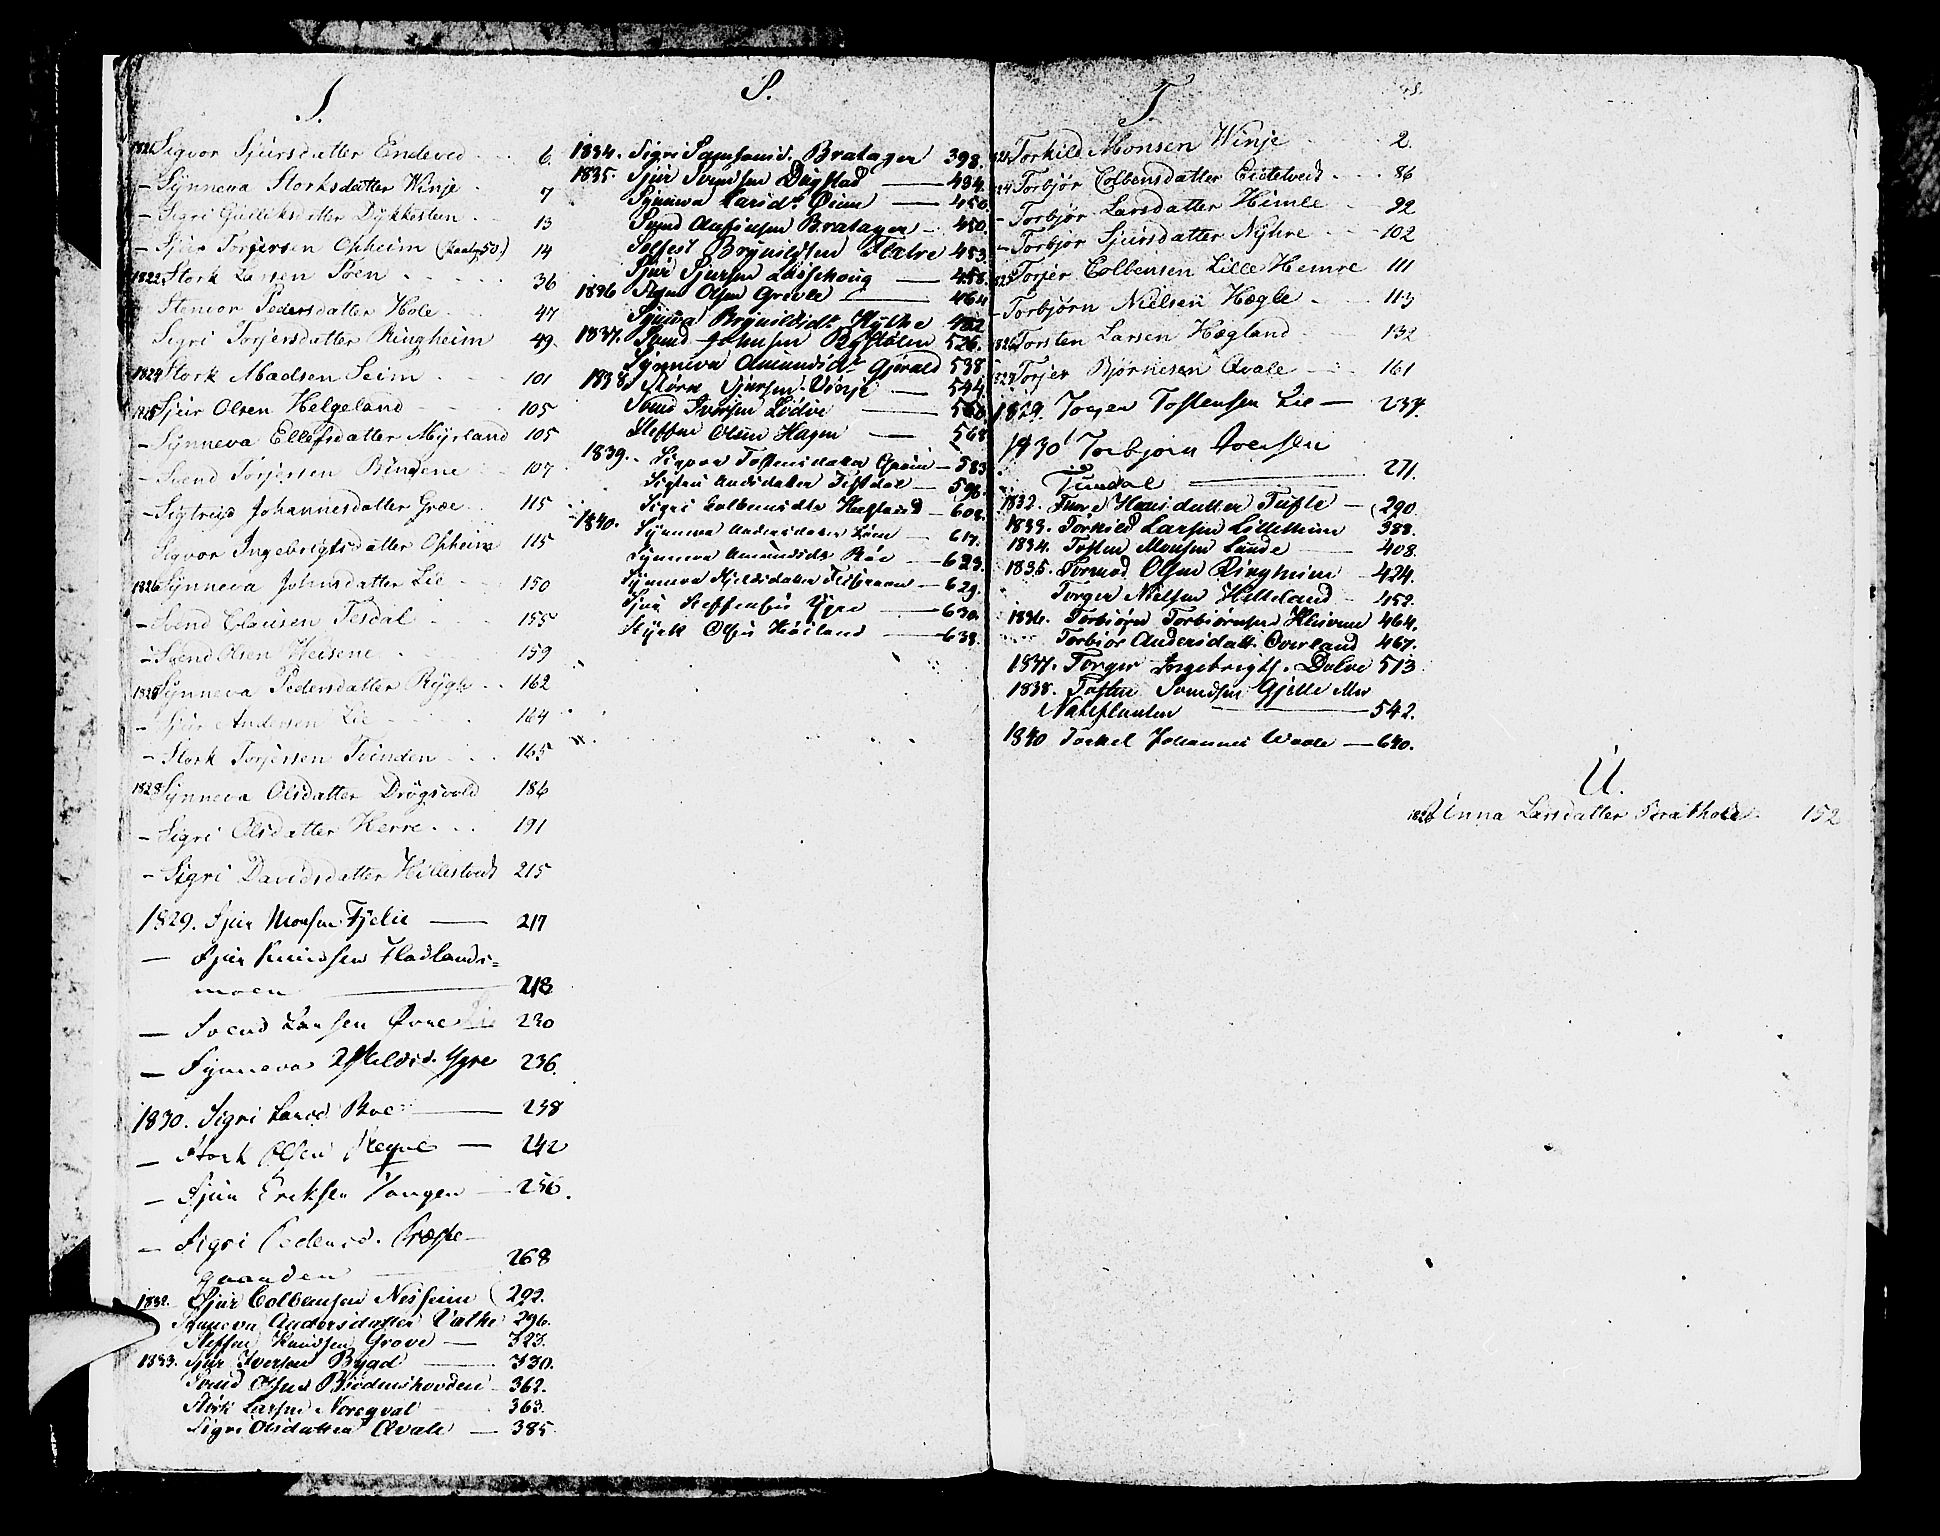 S.
1821 Sigvor Sjursdatter Endeved 6.
- Synneva Storksdatter Winje 7
- Sigri Gulliksdatter Dykkesteen 13
- Sjur Torjersen Opheim 14
1822 Stork Larsen Soen 36
Stenvor Pedersdatter Hole 47
Sigri Torjersdatter Ringheim 49.
1824 Stork Madsen Seim 101
1825 Sjur Olsen Helgeland 105
- Synneva Ellefsdatter Myrland 105
- Svend Torjersen 107
- Sigtrud Johannesdatter Græe 115
Sigvor Ingebrigtsdatter Opheim 115
1826 Synneva Johnsdatter Lie 150
- Svend Clausen Tesdal 155
- Svend Olsen 159
Synneva Pedersdatter Rygh 162
- Sjur Andersen Lie 164
- Stork Torjersen Tvinden 165
1828 Synneva Olsdatter Drøgsvold 186
- Sigri Olsdatter Herre 191
- Sigri Davidsdatter Hillestvedt 215
1829. Sjur Monsen Fjelie — 217
— Sjur Knudsen Hadlands=
moen — 218
— Svend Larsen Øvre Lie 230
— Synneva Kieldsd. Ygre 236.
1830. Sigri Larsd Boe — 238
— Stork Olsen — 242
— Sjur Eriksen Vangen — 256.
— Sigri Pedersd. Præste-
gaarden 268
1832. Sjur Colbensen Nesheim 292.
Synneva Andersdatter 296.
Steffen Knudsen Grove — 323.
1833. Sjur Iversen Bygd — 330.
Svend Olsen 362.
Stork Larsen Noreqval 363.
Sigri Olsdatter Qvale — 385
S.
1834. Sigri Samsonsd. Bratager 398.
1835. Sjur Svendsen Dugstad — 434.
Synneva Larsdr Øium — 450
Svend Bratager — 450.
Brynildsen Flatre 453.
Sjur Sjursen — 458.
1836 Olsen Grevle — 464
Synneva Brynildsdr Kythe 482
1837. Svend Johnsen 526.
Synneva Amundsdr Gjerald 538
1838. Størk Sjursen Vinje — 544
Svend Iversen — 560.
Steffen Olsen Hagen — 568
1839. Sigvor Tostensdatter — 583
— 596.
Sigri Colbensdtr — 608.
1840. Synneva Andersdatter — 617.
Synneva Amundsdr Röe — 623.
Synneva Kjeldsdatter — 629.
Sjur Steffensen Ygre — 630.
Styrk Olsen — 638.
T.
Torkild Monsen Winje 2.
1824 Torbjør Colbensdatter 86
- Torbjør Larsdatter Himle 92
- Torbjør Sjursdatter Nyhre 102
1825 Torjer Colbensen Lille Hemre 111
- Torbjørn Nielsen Hægle 113
1826 Torsten Larsen Hægland 132
1827 Torjer Bjørnesen Qvale 161
1829. Torger Tostensen Lie — 237.
1830 Torbjørn Iversen
— 271.
1832. Hansdatter Tufte — 290.
1833. Torkied Larsen Lilletheim 388.
1834. Tosten Monsen Lunde — 408.
1835. Tormod Olsen Ringheim — 424.
Torger Nielsen Helleland 452.
1836. Torbiørn Torbiørnsen 464.
Torbiør Andersdatt. Overland 467.
1837. Torger Ingebrigts. Dolve 513
1838. Tosten Svendsen Gjelle
— 542.
1840 Torkel Johannes — 640.
U.
Unna Larsdatter 152